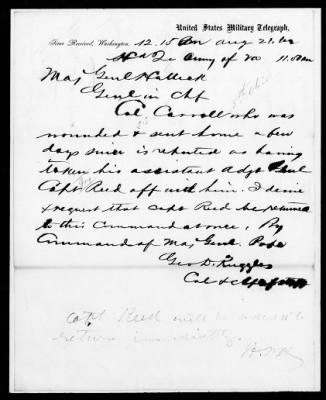 United States Military Telegraph.
Time Received, Washington, 12.15 Pm Aug 21, 1862
Hd Qrs Army of Va 11.50 am
Maj Genl Halleck
Genl in Chf
Col. Carroll who was
wounded & sent home a few
days since is reported as having
taken his assistant adgt Genl
Capt Reed off with him. I desire
& request that Capt Reed be returned
to this Command at once. By
Command of Maj Genl. Pope
Geo D. Ruggles
Col &
Capt Reed will be ordered to
return immediately.